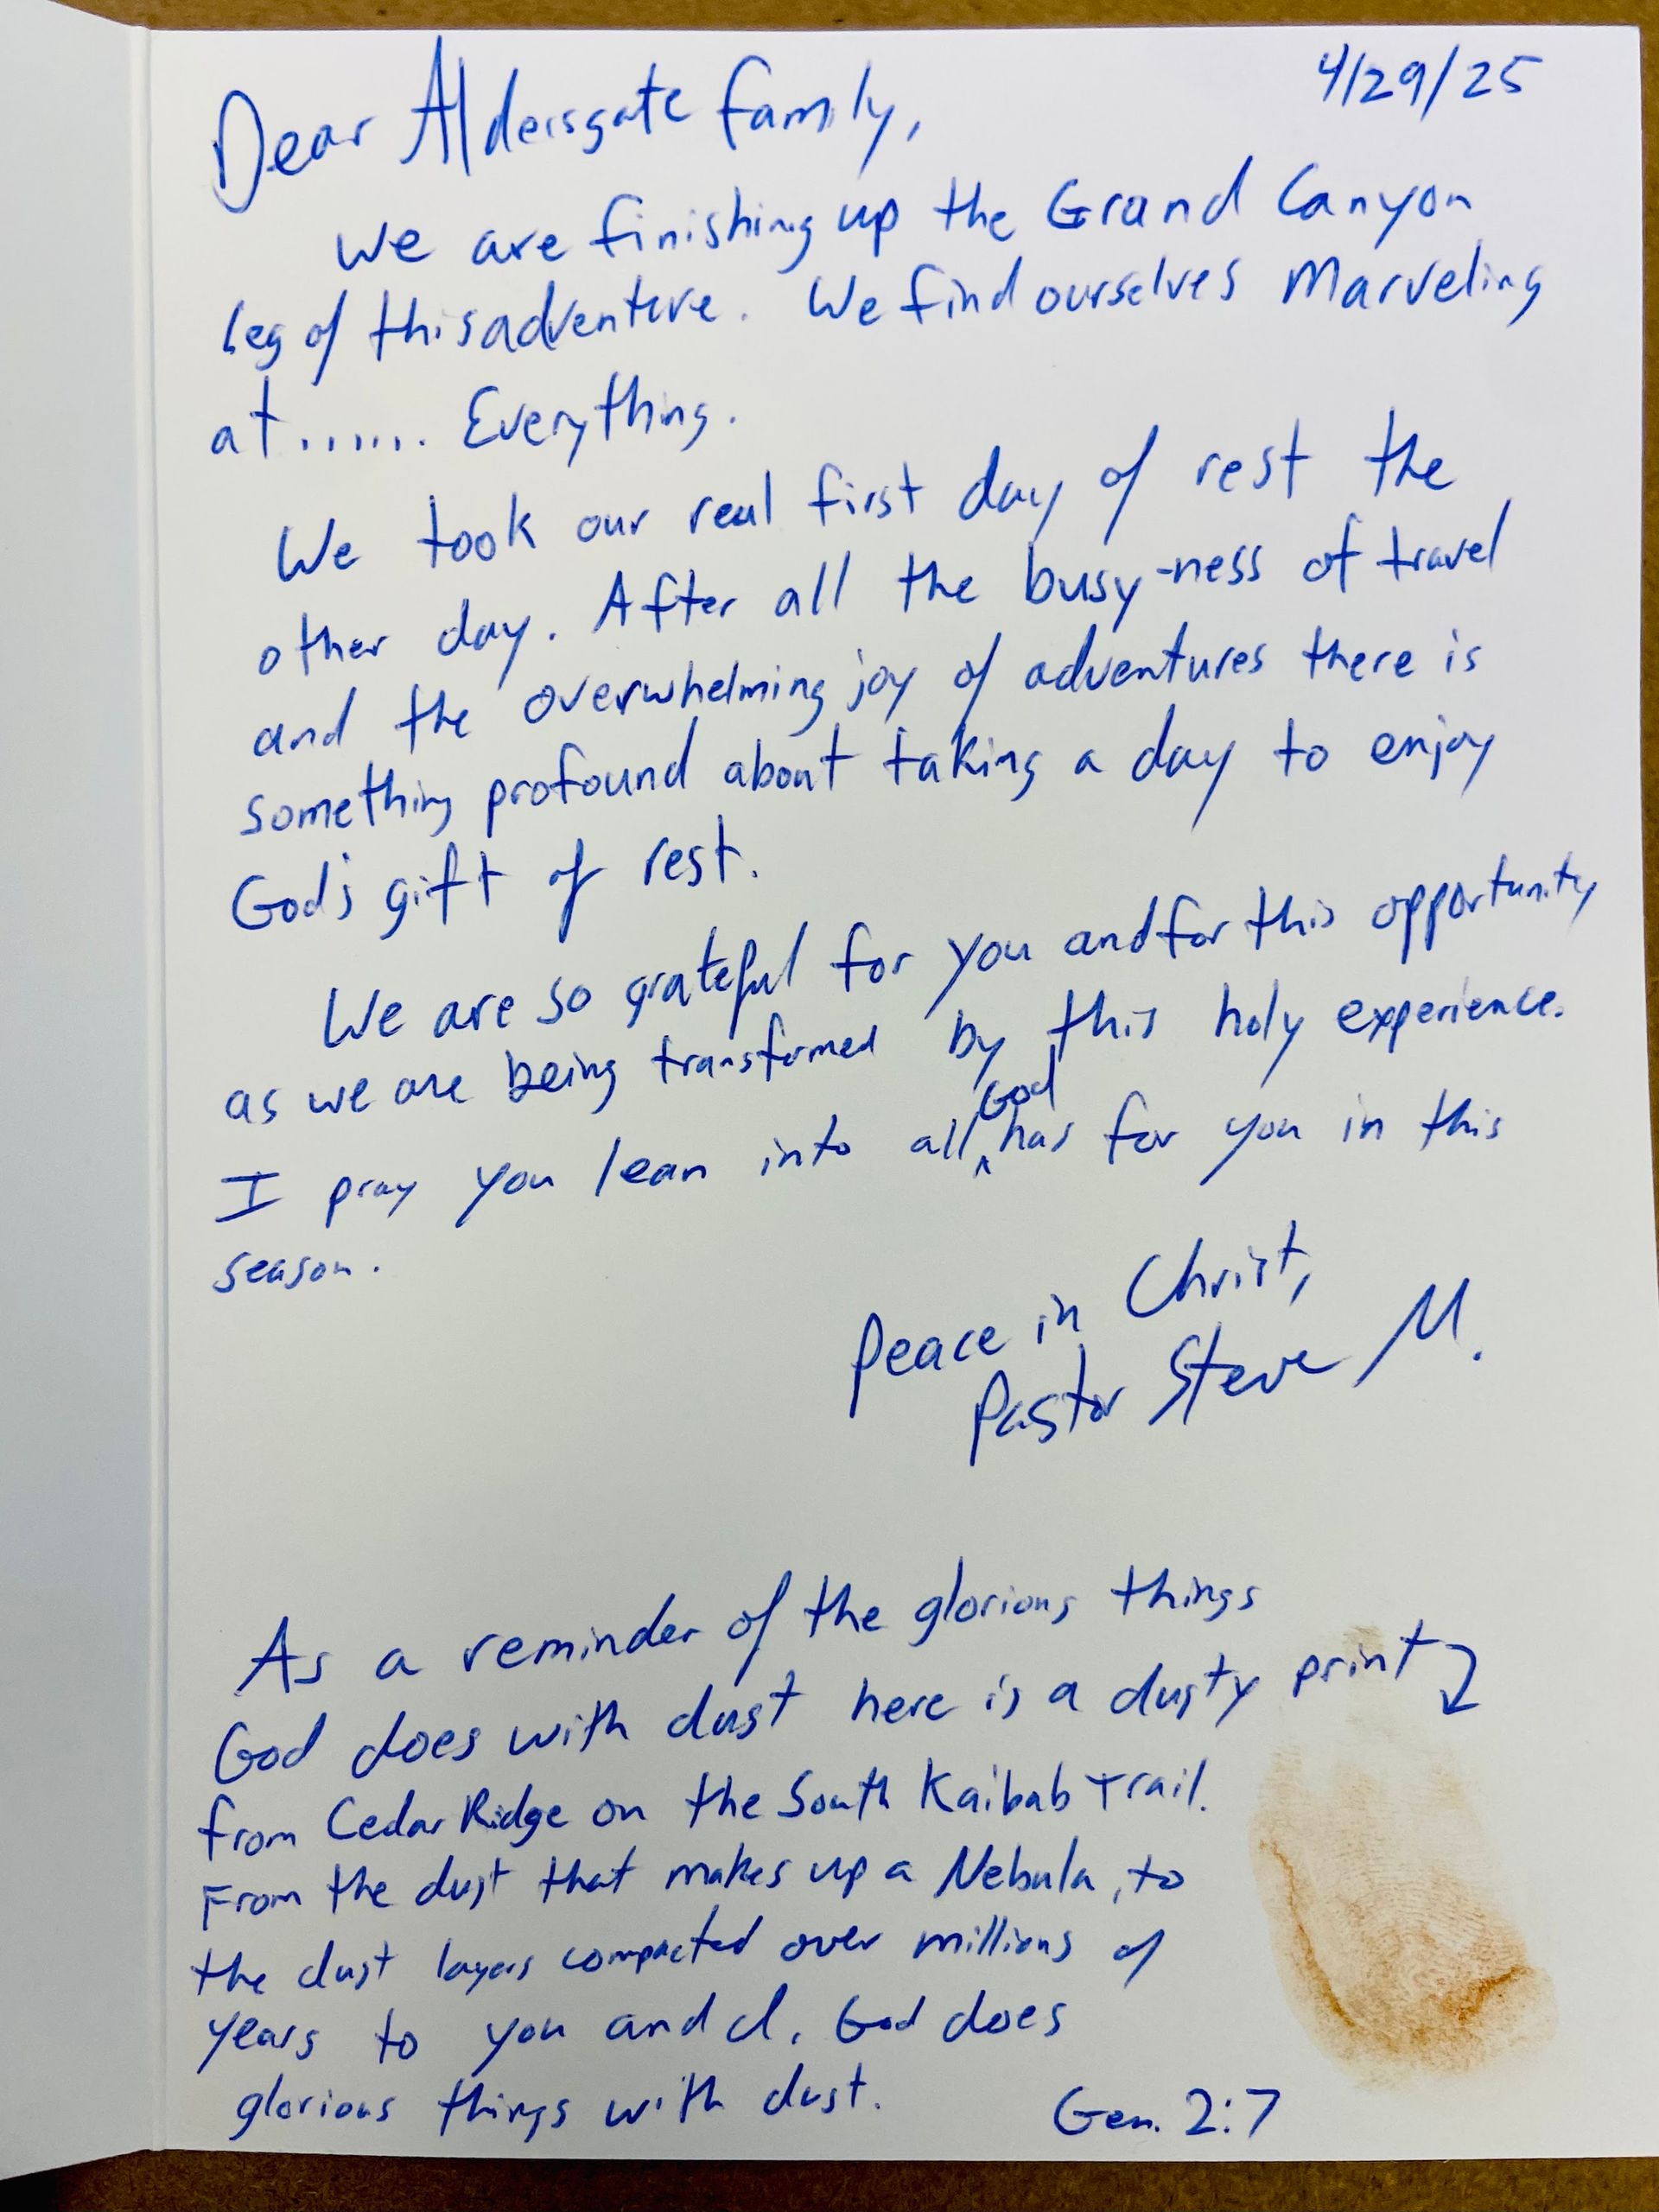 4/29/25
Dear Aldersgate family,
We are finishing up the Grand Canyon
leg of this adventure. We find ourselves Marveling
at...... Everything.
We took our real first day of rest the
other day. After all the busy-ness of travel
and the overwhelming joy of adventures there is
something profound about taking a day to enjoy
God's gift of rest.
We are so grateful for you and for this opportunity
as we are being transformed by this holy experience.
I pray you lean into all God has for you in this
season.
Peace in Christ,
Pastor Steve M.
As a reminder of the glorious things
God does with dust here is a dusty print
from Cedar Ridge on the South Kaibab Trail.
From the dust that makes up a Nebula, to
the dust layers compacted over millions of
years to you and I. God does
glorious things with dust.
Gen. 2:7